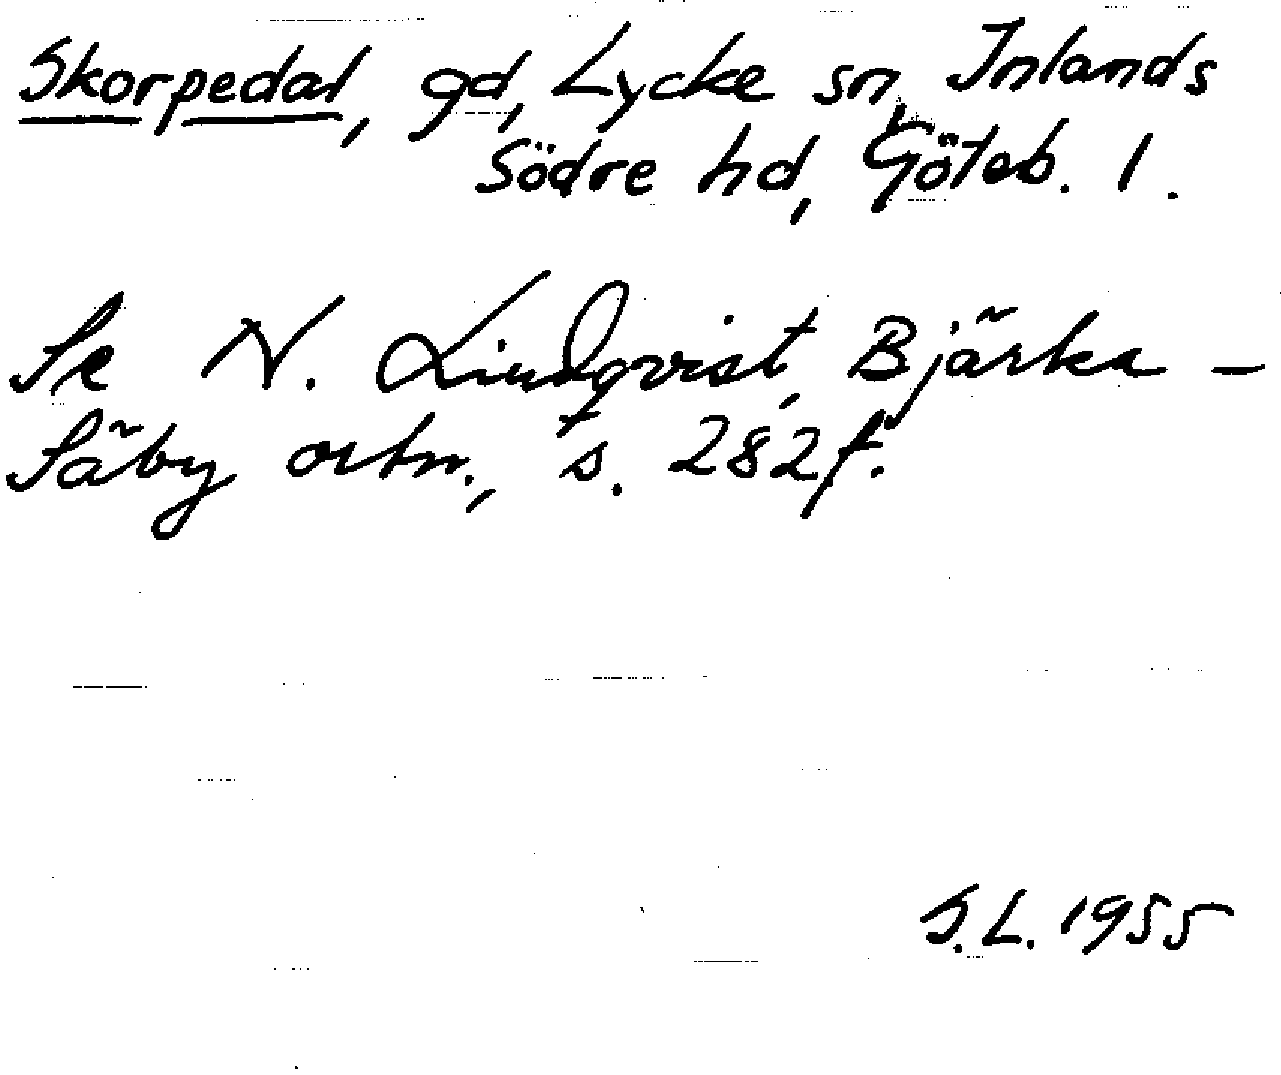 Skorpedal, gd, Lycke sn, Inlands
Södre hd, Göteb. l.
Se N. Lindqvist, Bjärka -
Säby ortn., s. 282 f.
S.L. 1955